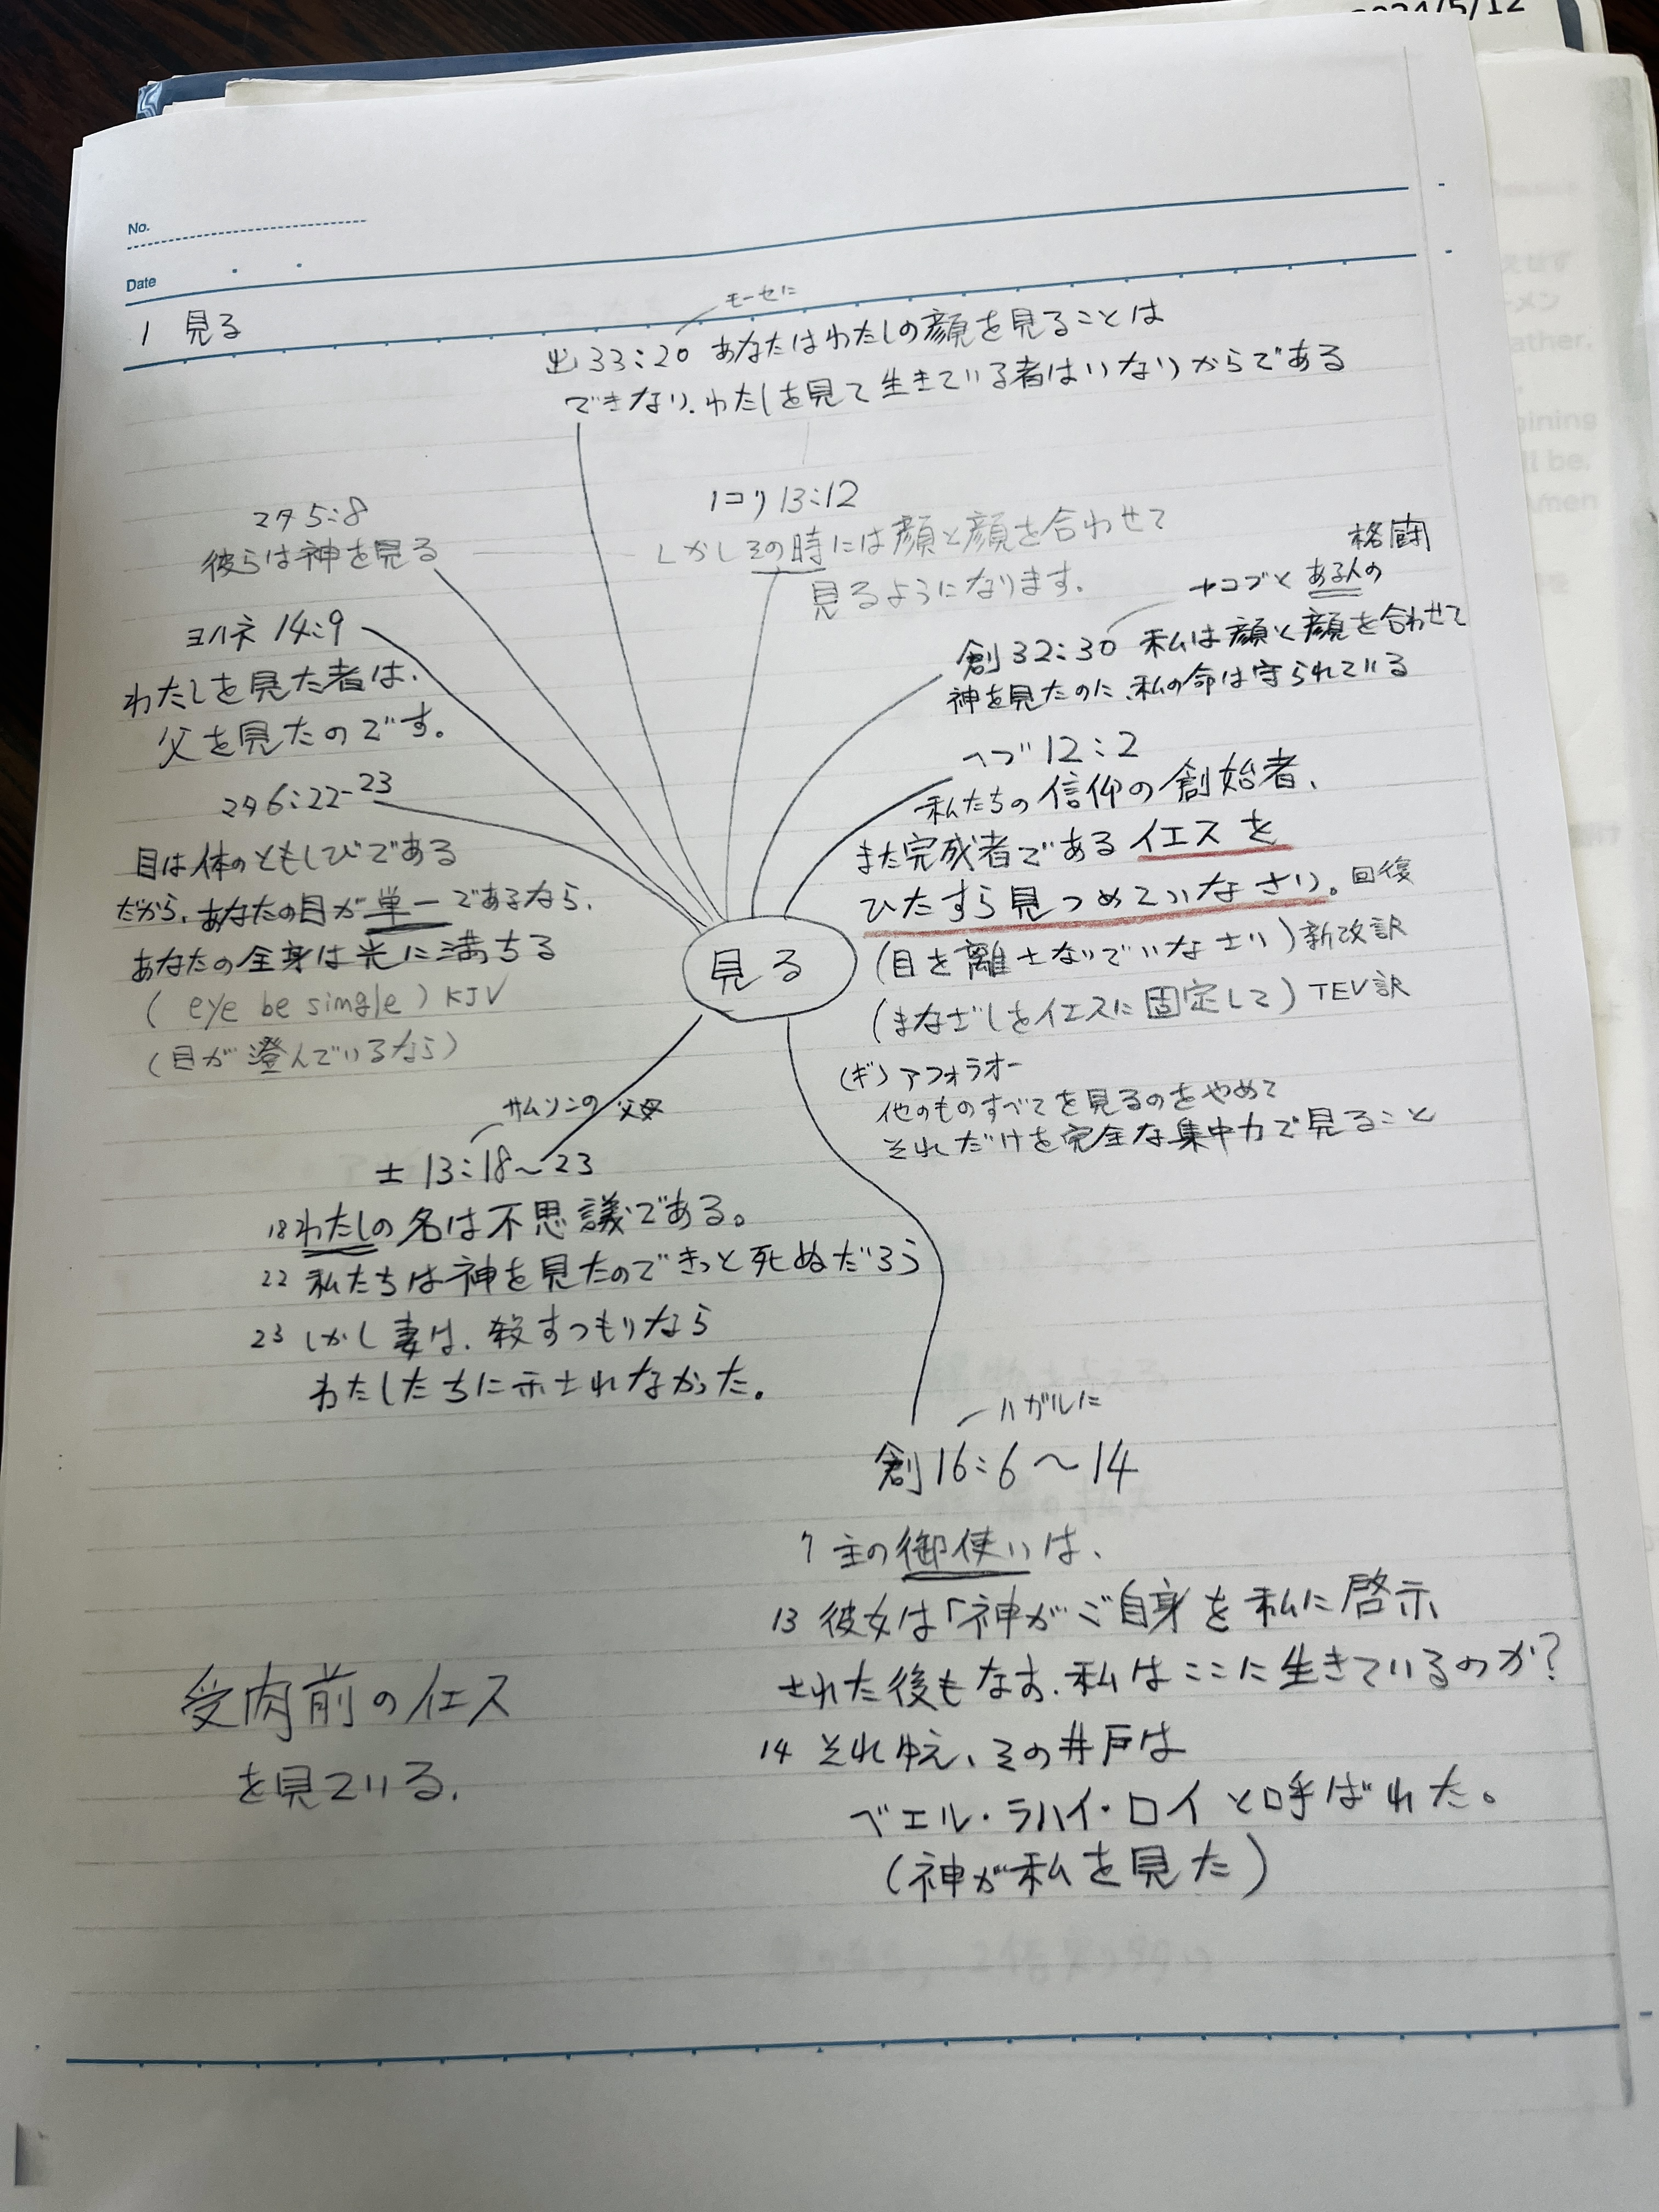 2024/5/12
No.
Date
1 見る
モーセに
出33:20 あなたはわたしの顔を見ることは
できない、わたしを見て生きている者はいないからである
マタ5:8
彼らは神を見る
1コリ13:12
しかしその時には顔と顔を合わせて
見るようになります.
格闘
ヤコブと ある人の
創32:30 私は顔と顔を合わせて
神を見たのに、私の命は守られている
ヨハネ 14:9
わたしを見た者は、
父を見たのです。
ヘブ 12:2
私たちの信仰の創始者、
また完成者であるイエスを
ひたすら見つめていなさい。回復
(目を離さないでいなさい) 新改訳
(まなざしをイエスに固定して) TEV訳
(ギ) アフォラオー
他のものすべてを見るのをやめて
それだけを完全な集中力で見ること
マタ6:22-23
目は体のともしびである
だから、あなたの目が単一であるなら、
あなたの全身は光に満ちる
( eye be single ) KJV
(目が澄んでいるなら)
見る
サムソンの 父母
士 13:18~23
18 わたしの名は不思議である。
22 私たちは神を見たのできっと死ぬだろう
23 しかし妻は、殺すつもりなら
わたしたちに示されなかった。
ハガルに
創16:6~14
7 主の御使いは、
13 彼女は「神がご自身を私に啓示
された後もなお、私はここに生きているのか?
14 それゆえ、その井戸は
ベエル・ラハイ・ロイと呼ばれた。
(神が私を見た)
受肉前のイエス
を見ている.